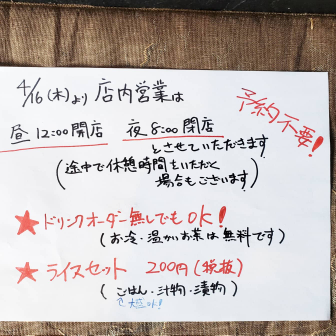 4/16(木)より 店内営業は
予約不要!
昼 12:00開店 夜 8:00閉店
とさせていただきます
(途中で休憩時間をいただく
場合もございます)
★ドリンクオーダー無しでもOK!
(お冷・温かいお茶は無料です)
★ライスセット 200円(税抜)
(ごはん・汁物・漬物)
大盛OK!